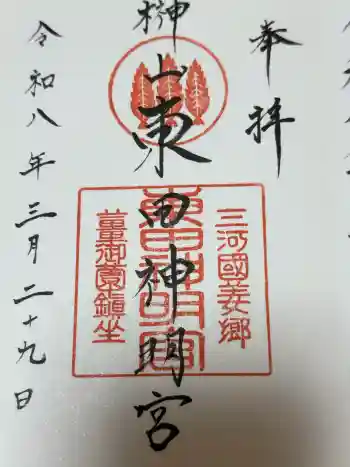 奉拝
榊山東田神明宮
三河國姜郷
東田神明宮
薑御園鎮坐
令和八年三月二十九日